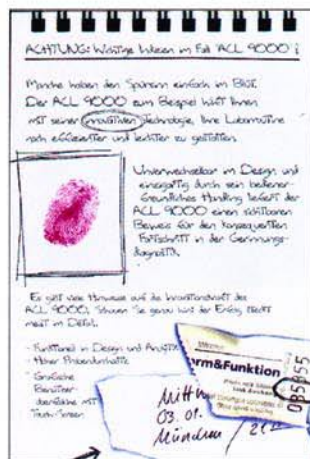 ACHTUNG: Wichtige Indizien im Fall ACL 9000 !
Manche haben den Spürsinn einfach im Blut.
Der ACL 9000 zum Beispiel hilft Ihnen
mit seiner innovativen Technologie, Ihre Laborroutine
noch effizienter und leichter zu gestalten.
Unverwechselbar im Design und
einzigartig durch sein bediener-
freundliches Handling liefert der
ACL 9000 einen sichtbaren
Beweis für den konsequenten
Fortschritt in der Gerinnungs-
diagnostik.
Es gibt viele Hinweise auf die
ACL 9000. Schauen Sie genau hin! der Erfolg steckt
meist im Detail.
- Funktionell in Design und
- Hoher Probendurchsatz
- Grafische
Benutzer-
oberfläche mit
Touch-Screen
orm&Funktion
085855
Mittw
03. 01.
München